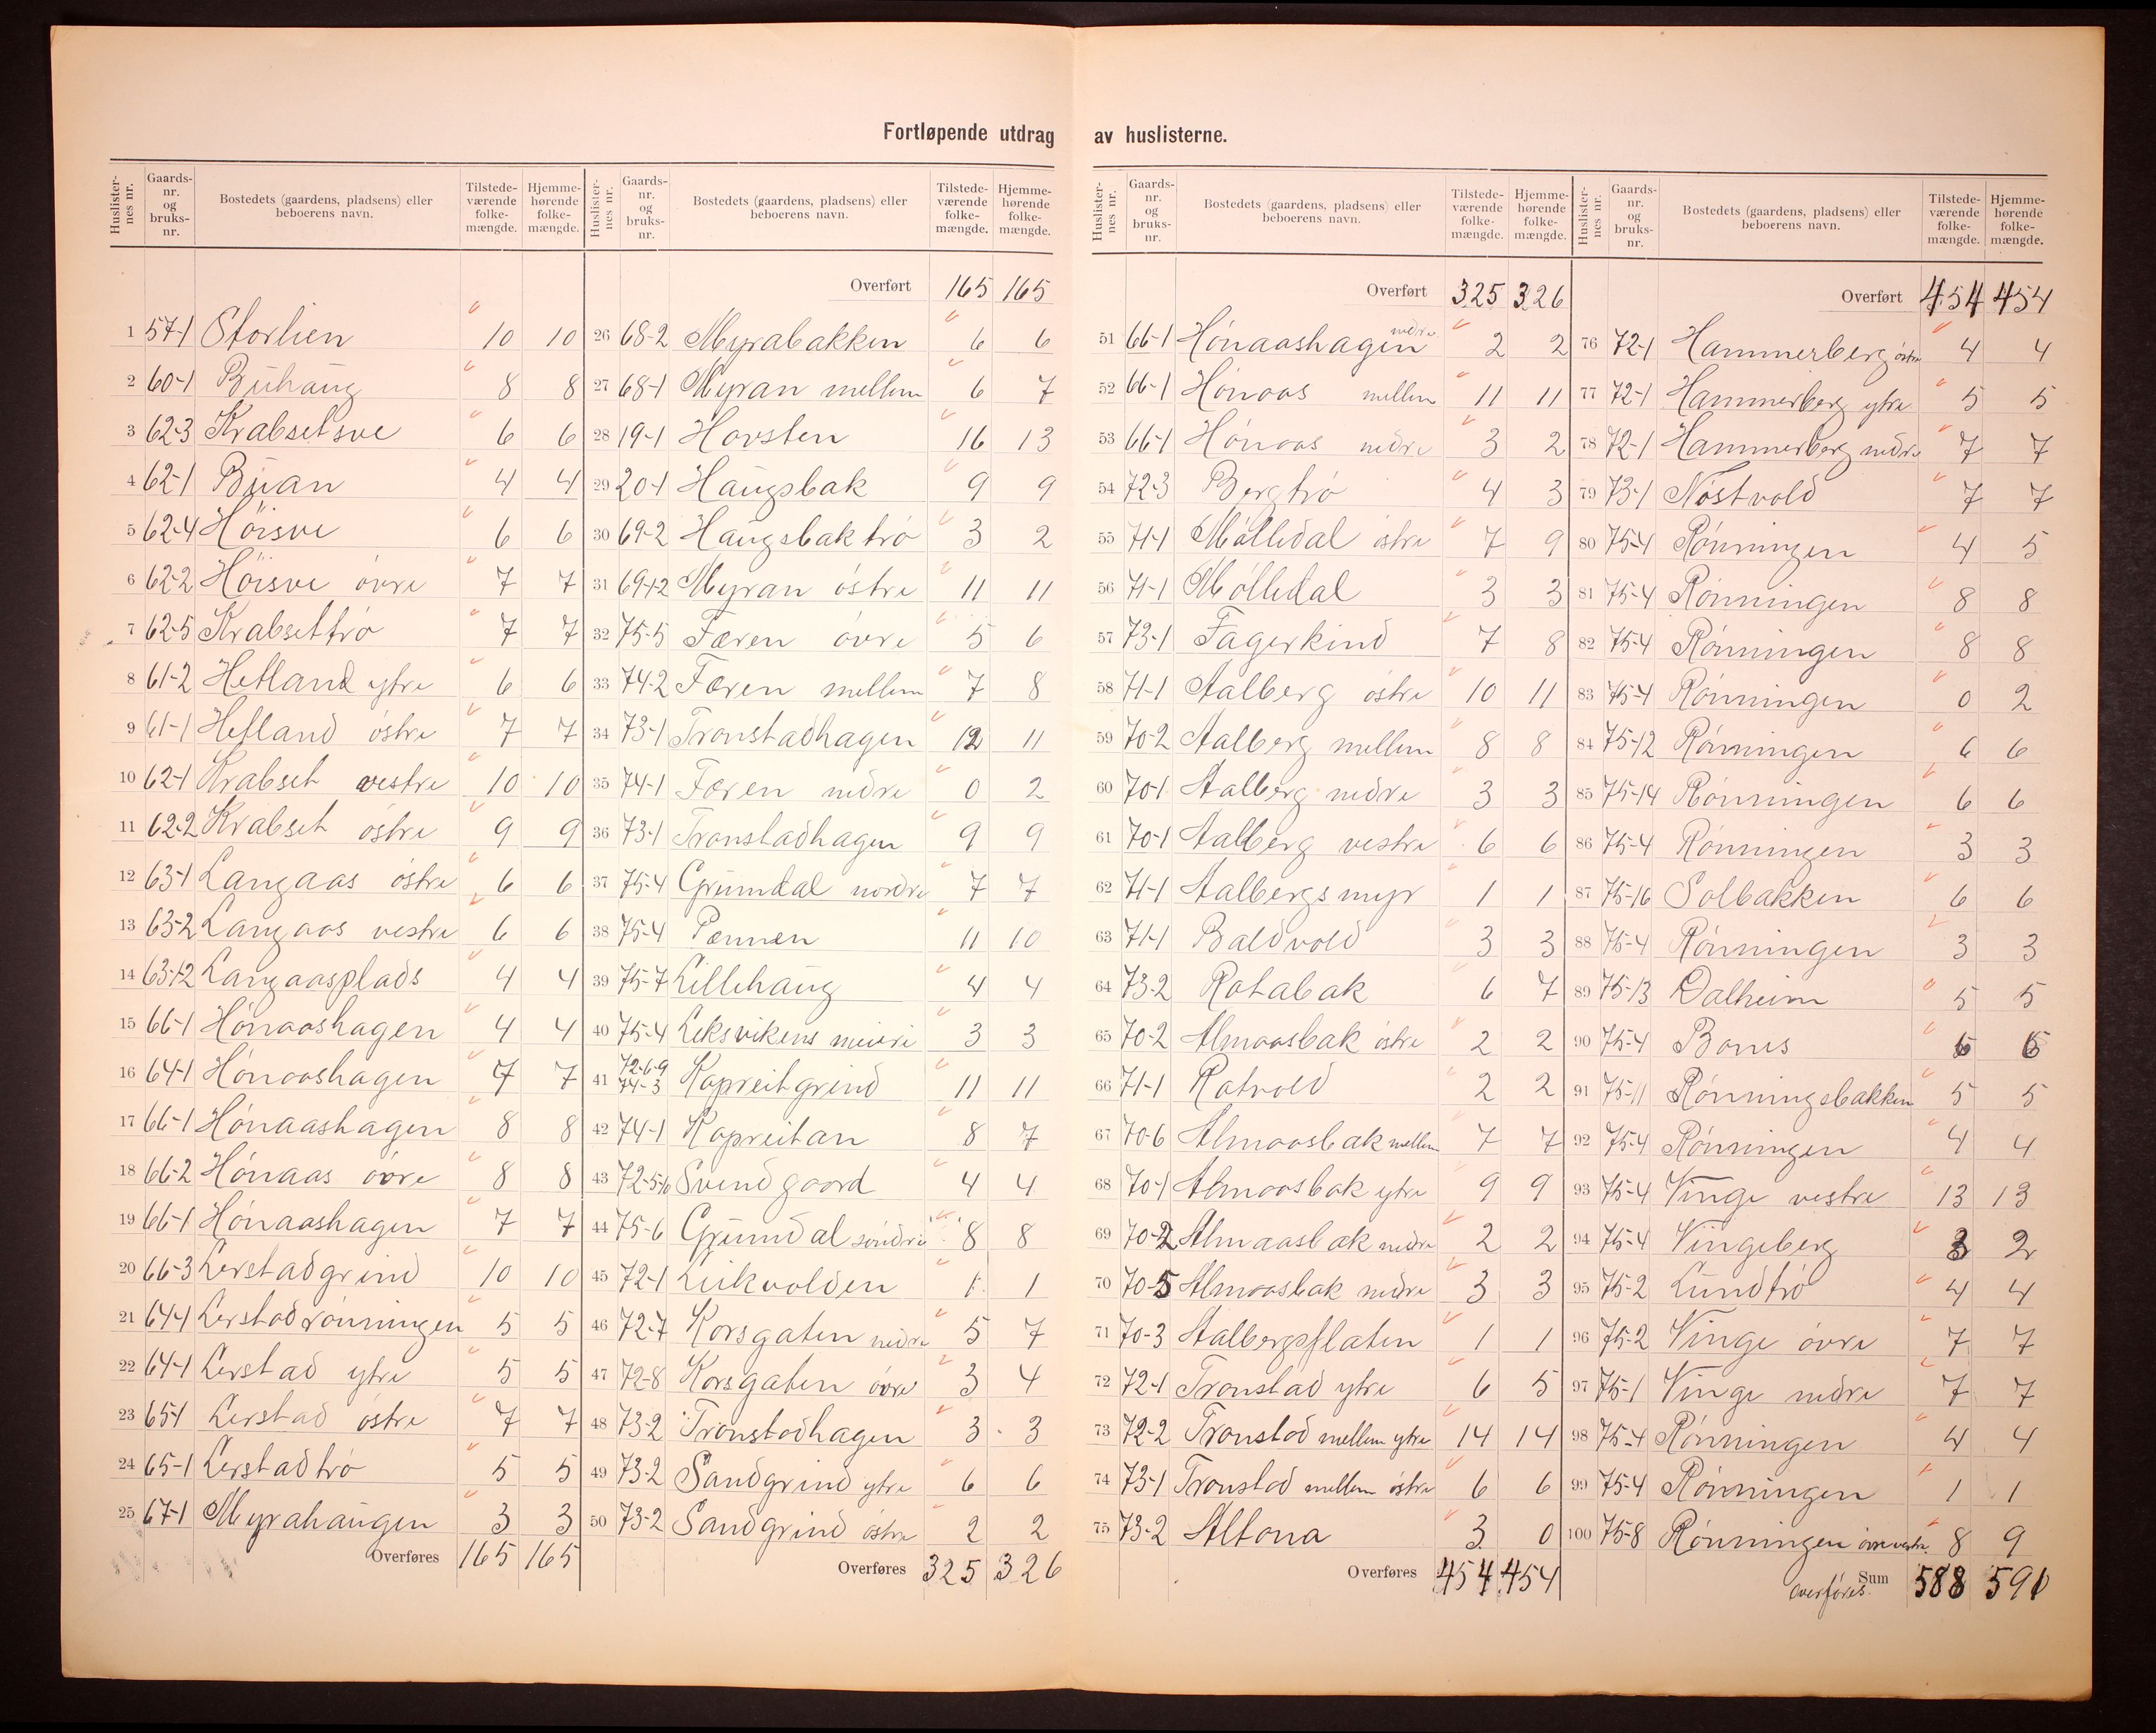 Fortløpende utdrag av huslisterne.
Huslisternes nr. | Gaards-nr. og bruks-nr. | Bostedets (gaardens, pladsens) eller beboerens navn. | Tilstedeværende folkemængde. | Hjemmehørende folkemængde.
1 57-1 Storlien 10 10
2 60-1 Buhaug 8 8
3 62-3 Krabsetsve 6 6
4 62-1 Buan 4 4
5 62-4 Höisve 6 6
6 62-2 Höisve övre 7 7
7 62-5 Krabsettrö 7 7
8 61-2 Hefland ytre 6 6
9 61-1 Hefland östre 7 7
10 62-1 Krabset vestre 10 10
11 62-2 Krabset östre 9 9
12 63-1 Langaas östre 6 6
13 63-2 Langaas vestre 6 6
14 63-1-2 Langaasplads 4 4
15 66-1 Hönaashagen 4 4
16 64-1 Hönaashagen 7 7
17 66-1 Hönaashagen 8 8
18 66-2 Hönaas övre 8 8
19 66-1 Hönaashagen 7 7
20 66-3 Lerstadgrind 10 10
21 64-1 Lerstadrönningen 5 5
22 64-1 Lerstad ytre 5 5
23 65-1 Lerstad östre 7 7
24 65-1 Lerstadtrö 5 5
25 67-1 Myrahaugen 3 3
Overføres 165 165
Huslisternes nr. | Gaards-nr. og bruks-nr. | Bostedets (gaardens, pladsens) eller beboerens navn. | Tilstedeværende folkemængde. | Hjemmehørende folkemængde.
Overført 165 165
26 68-2 Myrabakken 6 6
27 68-1 Myran mellem 6 7
28 19-1 Hovsten 16 13
29 20-1 Haugsbak 9 9
30 69-2 Haugsbaktrö 3 2
31 69-1-2 Myran östre 11 11
32 75-5 Færen övre 5 6
33 74-2 Færen mellem 7 8
34 73-1 Tronstadhagen 12 11
35 74-1 Færen nedre 0 2
36 73-1 Tronstadhagen 9 9
37 75-4 Grundal nordre 7 7
38 75-4 Pennen 11 10
39 75-7 Lillehaug 4 4
40 75-4 Leksvikens meieri 3 3
41 72-6-9 74-3 Kopreitgrind 11 11
42 74-1 Kopreitan 8 7
43 72-5-10 Svendgaard 4 4
44 75-6 Grundal söndre 8 8
45 72-1 Leikvolden 1 1
46 72-7 Korsgaten nedre 5 7
47 72-8 Korsgaten övre 3 4
48 73-2 Tronstadhagen 3 3
49 73-2 Sandgrind ytre 6 6
50 73-2 Sandgrind östre 2 2
Overføres 325 326
Huslisternes nr. | Gaards-nr. og bruks-nr. | Bostedets (gaardens, pladsens) eller beboerens navn. | Tilstedeværende folkemængde. | Hjemmehørende folkemængde.
Overført 325 326
51 66-1 Hönaashagen nedre 2 2
52 66-1 Hönaas mellem 11 11
53 66-1 Hönaas nedre 3 2
54 72-3 Bergtrö 4 3
55 71-1 Mölledal östre 7 9
56 71-1 Mölledal 3 3
57 73-1 Fagerkind 7 8
58 71-1 Aalberg östre 10 11
59 70-2 Aalberg mellem 8 8
60 70-1 Aalberg nedre 3 3
61 70-1 Aalberg vestre 6 6
62 71-1 Aalbergsmyr 1 1
63 71-1 Baldvold 3 3
64 73-2 Rotabak 6 7
65 70-2 Almaasbak östre 2 2
66 71-1 Ratvold 2 2
67 70-6 Almaasbak mellem 7 7
68 70-1 Almaasbak ytre 9 9
69 70-2 Almaasbak nedre 2 2
70 70-5 Almaasbak nedre 3 3
71 70-3 Aalbergsflaten 1 1
72 72-1 Tronstad ytre 6 5
73 72-2 Tronstad mellem ytre 14 14
74 73-1 Tronstad mellem östre 6 6
75 73-2 Altona 3 0
Overføres 454 454
Huslisternes nr. | Gaards-nr. og bruks-nr. | Bostedets (gaardens, pladsens) eller beboerens navn. | Tilstedeværende folkemængde. | Hjemmehørende folkemængde.
Overført 454 454
76 72-1 Hammerberg östre 4 4
77 72-1 Hammerberg ytre 5 5
78 72-1 Hammerberg nedre 7 7
79 73-1 Nöstvold 7 7
80 75-4 Rönningen 4 5
81 75-4 Rönningen 8 8
82 75-4 Rönningen 8 8
83 75-4 Rönningen 0 2
84 75-12 Rönningen 6 6
85 75-14 Rönningen 6 6
86 75-4 Rönningen 3 3
87 75-16 Solbakken 6 6
88 75-4 Rönningen 3 3
89 75-13 Dalheim 5 5
90 75-4 Bones 6 6
91 75-11 Rönningsbakken 5 5
92 75-4 Rönningen 4 4
93 75-4 Vinge vestre 13 13
94 75-4 Vingeberg 3 2
95 75-2 Lundtrö 4 4
96 75-2 Vinge övre 7 7
97 75-1 Vinge nedre 7 7
98 75-4 Rönningen 4 4
99 75-4 Rönningen 1 1
100 75-8 Rönningen övre vestre 8 9
overföres. Sum 588 591